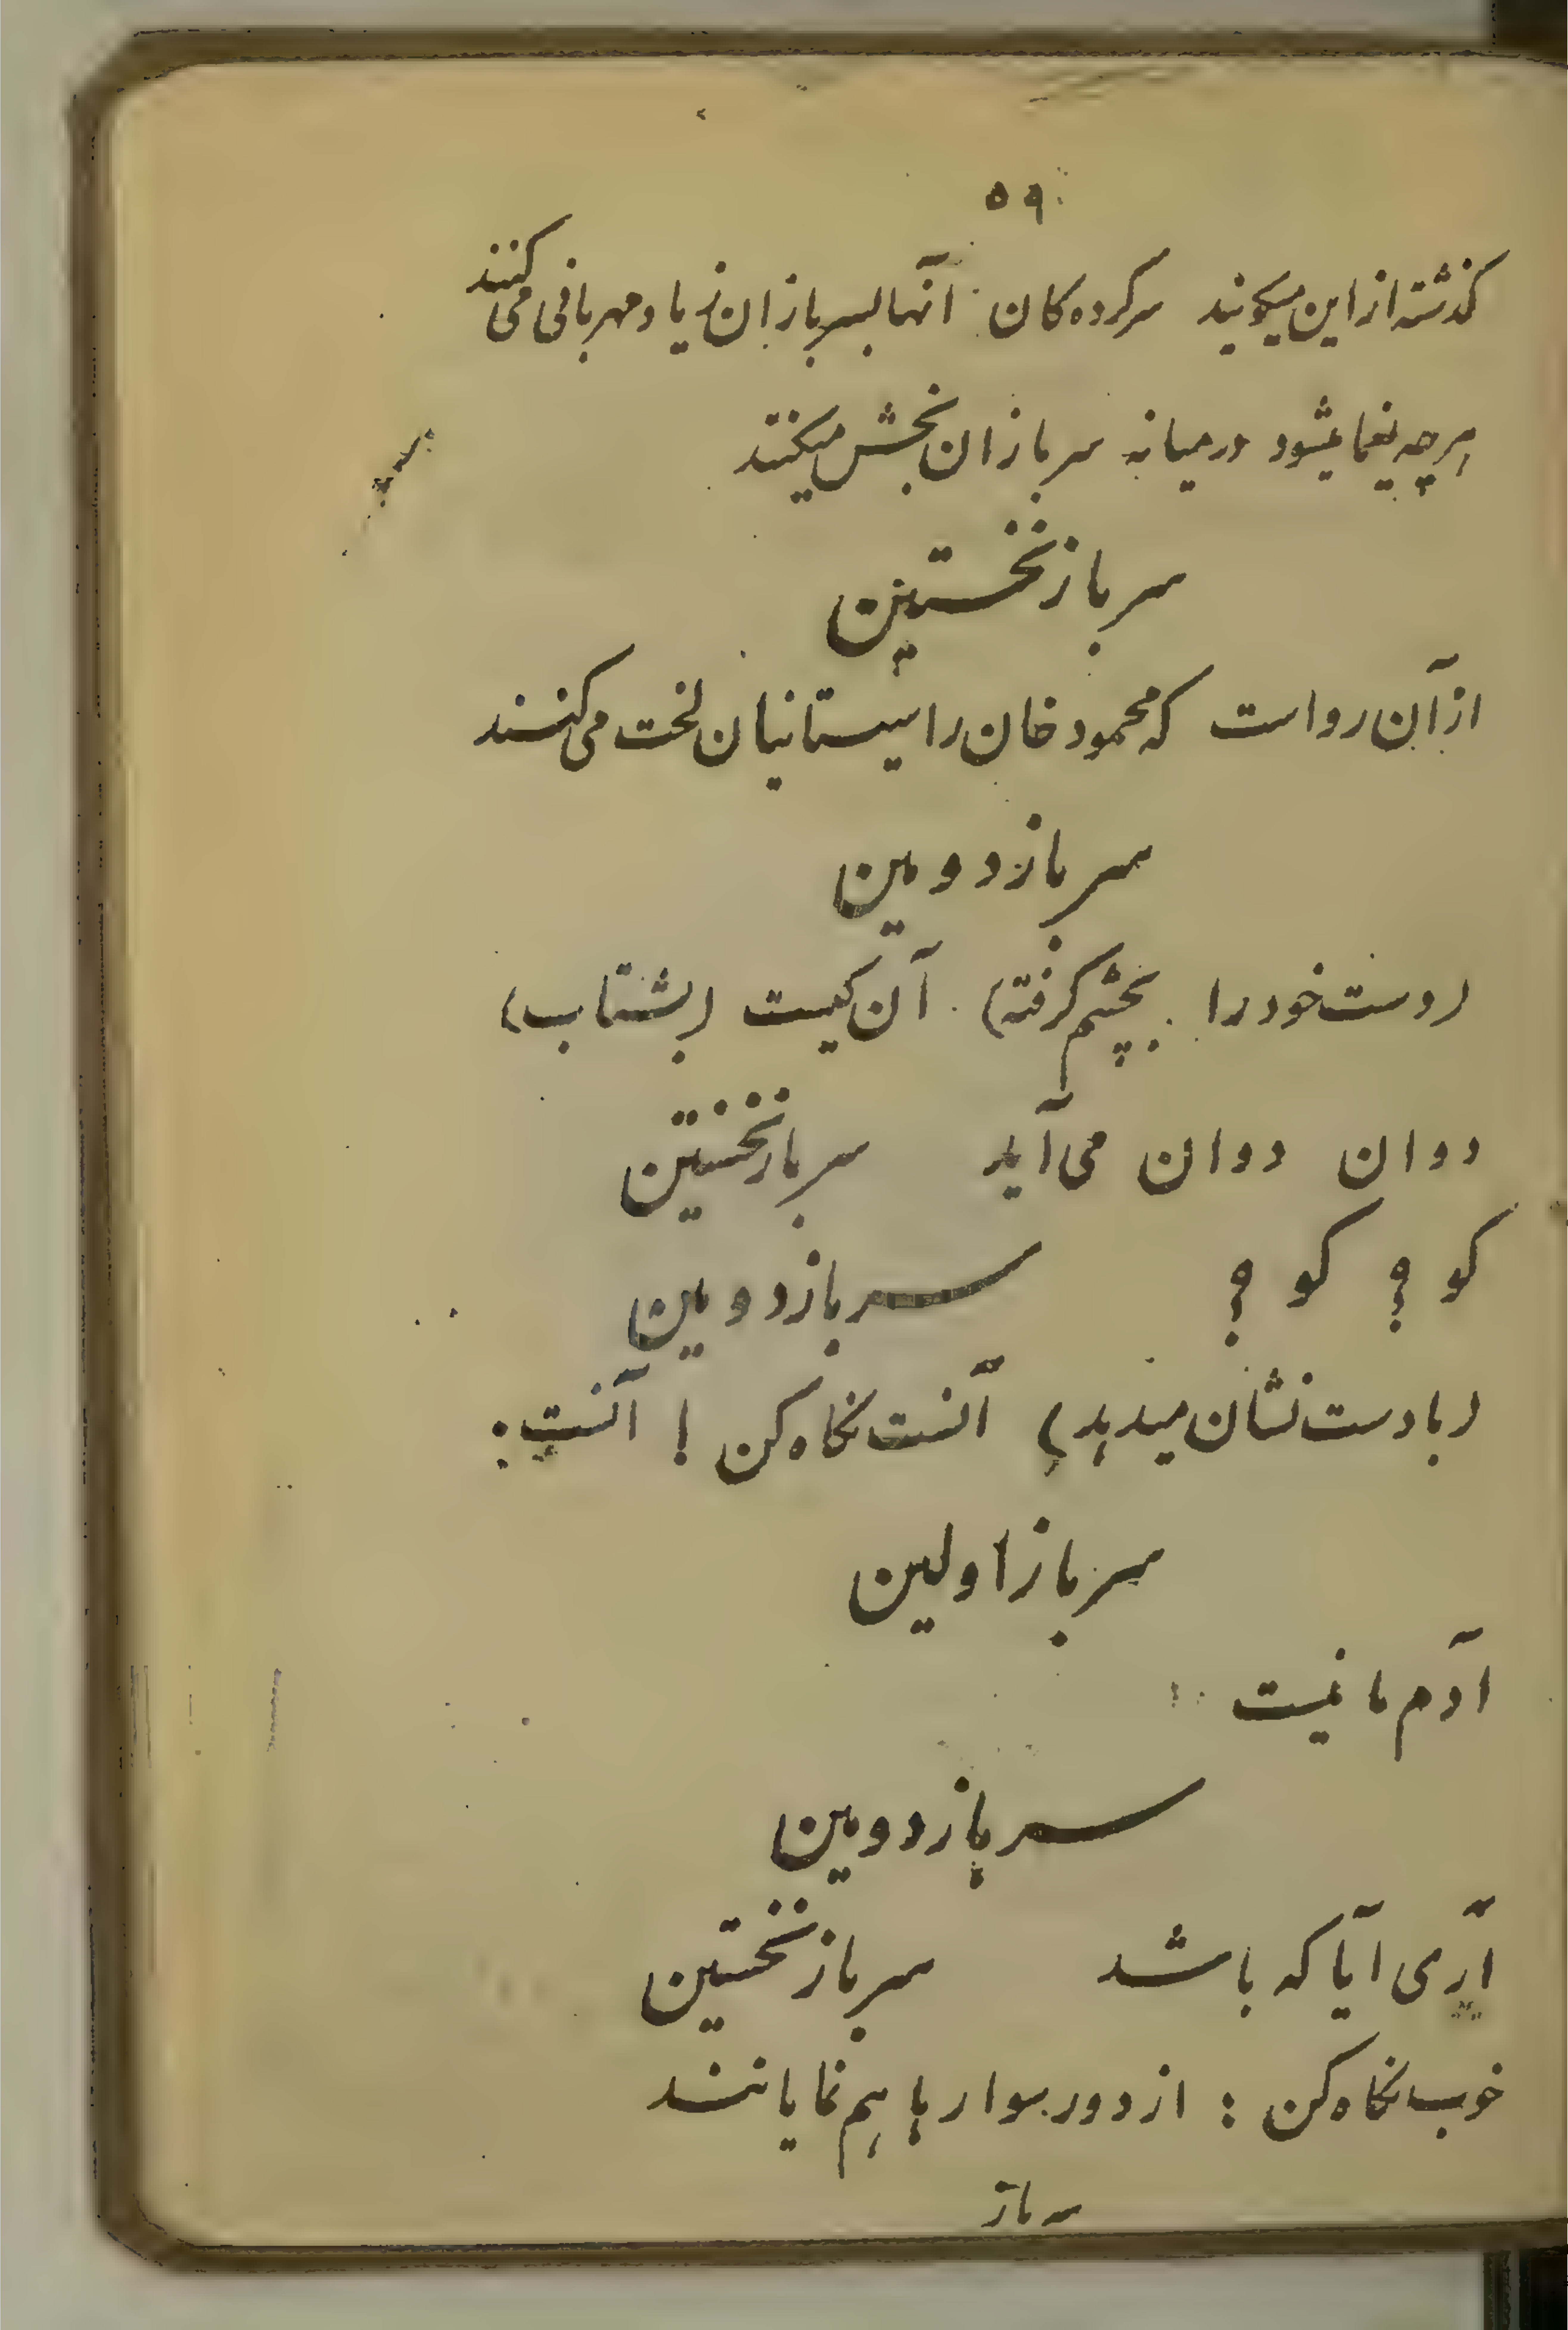 ۵۹
کذشته از این میکویند سرکرده کان آنها بسربازان زیاد مهربانی می کنند
هرچه یغما میشود درمیانه سربازان بخش میکنند
سرباز نخستین
از آن رو است که محمود خان را سیستانیان لخت می کنند
سرباز دومین
(دست خود را بچشم کرفته) آن کیست (بشتاب)
دوان دوان می آید سرباز نخستین
کو ؟ کو ؟ سرباز دومین
(با دست نشان میدهد) آنست نکاه کن ! آنست :
سرباز اولین
آدم ما نیست
سرباز دومین
آری آیا که باشد سرباز نخستین
خوب نکاه کن : از دور سوار ها هم نمایانند
سرباز